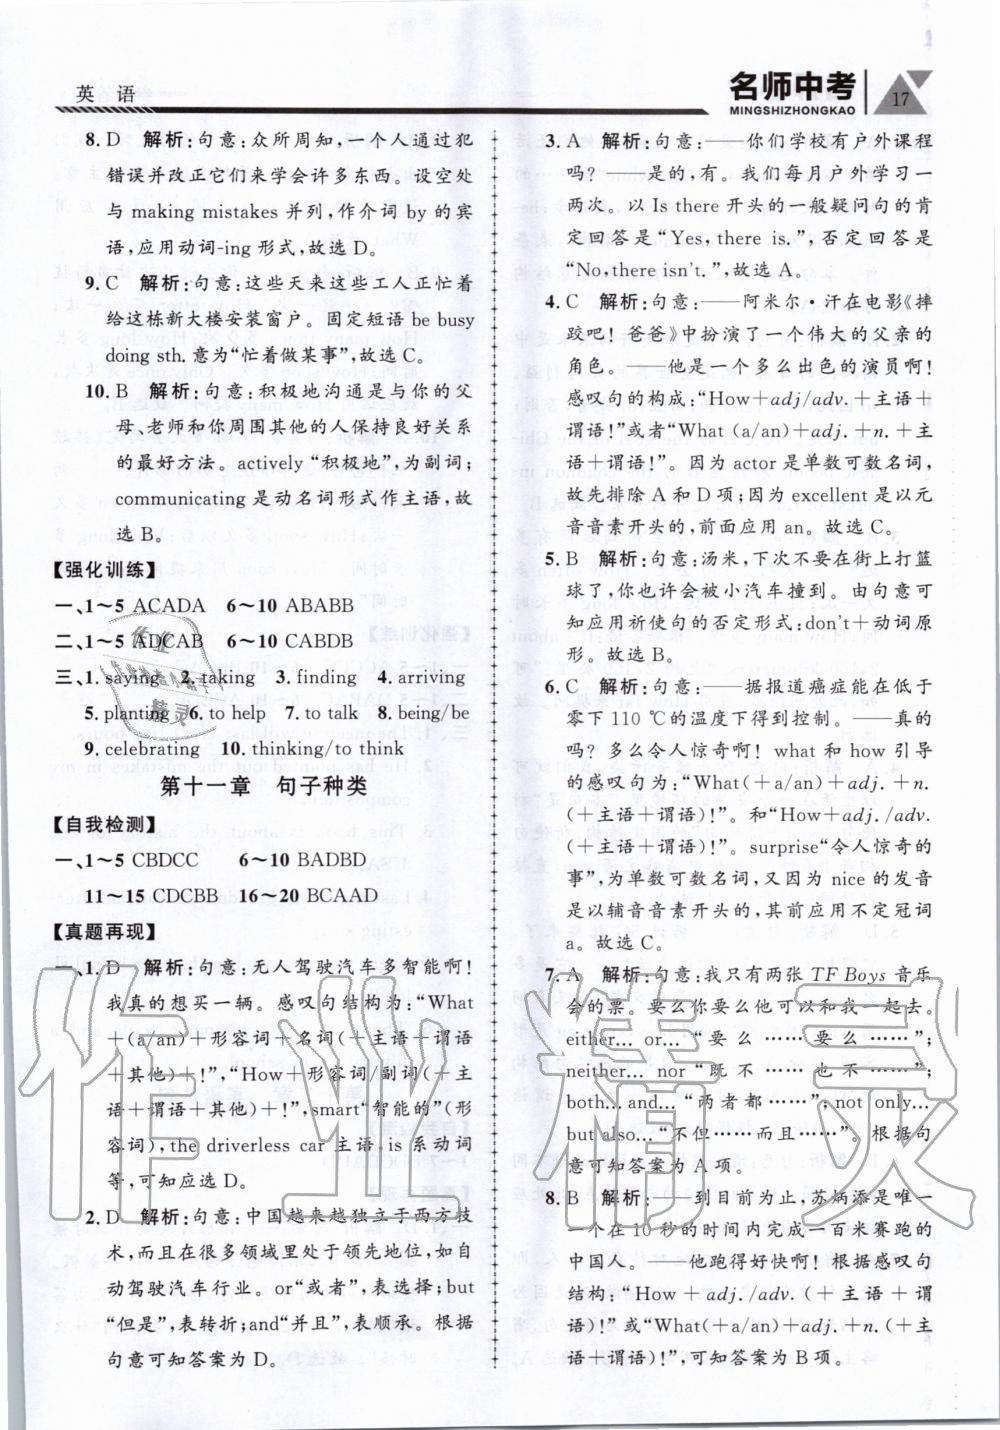 英 语
名师中考
MINGSHIZHONGKAO
17
8. D 解析:句意:众所周知,一个人通过犯
错误并改正它们来学会许多东西。设空处
与 making mistakes 并列,作介词 by 的宾
语,应用动词-ing 形式,故选 D。
9. C 解析:句意:这些天来这些工人正忙着
给这栋新大楼安装窗户。固定短语 be busy
doing sth. 意为“忙着做某事”,故选 C。
10. B 解析:句意:积极地沟通是与你的父
母、老师和你周围其他的人保持良好关系
的最好方法。actively “积极地”,为副词;
communicating 是动名词形式作主语,故
选 B。
【强化训练】
一、1~5 ACADA 6~10 ABABB
二、1~5 ADCAB 6~10 CABDB
三、1. saying 2. taking 3. finding 4. arriving
5. planting 6. to help 7. to talk 8. being/be
9. celebrating 10. thinking/to think
第十一章 句子种类
【自我检测】
一、1~5 CBDCC 6~10 BADBD
11~15 CDCBB 16~20 BCAAD
【真题再现】
一、1. D 解析:句意:无人驾驶汽车多智能啊!
我真的想买一辆。感叹句结构为:“What
+(a/an)+形容词+名词(+主语+谓语
+其他)+!”,“How+形容词/副词(+主
语+谓语+其他)+!”,smart“智能的”(形
容词),the driverless car 主语,is 系动词
等,可知应选 D。
2. D 解析:句意:中国越来越独立于西方技
术,而且在很多领域里处于领先地位,如自
动驾驶汽车行业。or“或者”,表选择;but
“但是”,表转折;and“并且”,表顺承。根据
句意可知答案为 D。
3. A 解析:句意:——你们学校有户外课程
吗?——是的,有。我们每月户外学习一
两次。以 Is there 开头的一般疑问句的肯
定回答是“Yes, there is.”,否定回答是
“No, there isn't.”,故选 A。
4. C 解析:句意:——阿米尔·汗在电影《摔
跤吧!爸爸》中扮演了一个伟大的父亲的
角色。——他是一个多么出色的演员啊!
感叹句的构成:“How+adj/adv. +主语+
谓语!”或者“What (a/an)+adj. +n. +主
语+谓语!”。因为 actor 是单数可数名词,
故先排除 A 和 D 项;因为 excellent 是以元
音音素开头的,前面应用 an。故选 C。
5. B 解析:句意:汤米,下次不要在街上打篮
球了,你也许会被小汽车撞到。由句意可
知应用祈使句的否定形式:don't+动词原
形。故选 B。
6. C 解析:句意:——据报道癌症能在低于
零下 110 ℃的温度下得到控制。——真的
吗?多么令人惊奇啊! what 和 how 引导
的感叹句为:“What(+a/an)+adj. +n.
(+主语+谓语)!”。和“How+adj. /adv.
(+主语+谓语)!”。surprise“令人惊奇的
事”,为单数可数名词,又因为 nice 的发音
是以辅音音素开头的,其前应用不定冠词
a。故选 C。
7. A 解析:句意:我只有两张 TF Boys 音乐
会的票。要么你要么他可以和我一起去。
either... or... “要么……要么……”;
neither... nor “既不……也不……”;
both... and... “两者都……”;not only...
but also... “不但……而且……”。根据句
意可知答案为 A 项。
8. B 解析:句意:——到目前为止,苏炳添是唯一
一个在 10 秒的时间内完成一百米赛跑的
中国人。——他跑得好快啊!根据感叹句
结构:“How+adj. /adv. (+主语+谓
语)!”或“What(+a/an)+adj. +n. (+主
语+谓语)!”,可知答案为 B 项。
作业精灵